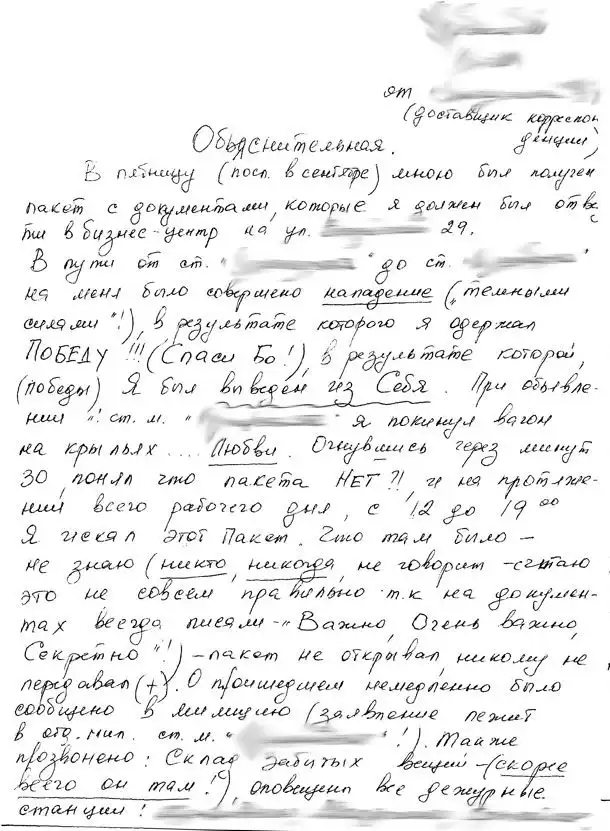 от
(доставщик корреспон
денции)
Объяснительная.
В пятницу (посл. в сентябре) мною был получен
пакет с документами, которые я должен был отвез
ти в бизнес-центр на ул. 29.
В пути от ст. " " до ст. " "
на меня было совершено нападение („темными
силами"!), в результате которого я одержал
ПОБЕДУ!!! (Спаси Бо!), в результате которой,
(победы) Я был выведен из Себя. При объявле-
нии "! ст. м. " " я покинул вагон
на крыльях .... Любви. Очнувшись через минут
30, понял что пакета НЕТ?!, и на протяже-
нии всего рабочего дня, с 12 до 19 00
Я искал этот Пакет. Что там было –
не знаю (никто, никогда, не говорит – считаю
это не совсем правильно т.к на докумен-
тах всегда писали -„ Важно, Очень важно,
Секретно "!) – пакет не открывал, никому не
передавал (+). О происшедшем немедленно было
сообщено в милицию (заявление лежит
в отд. мил. ст. м. " "!). Также
прозвонено: Склад забытых вещей – (скорее
всего он там!), оповещены все дежурные
станции: